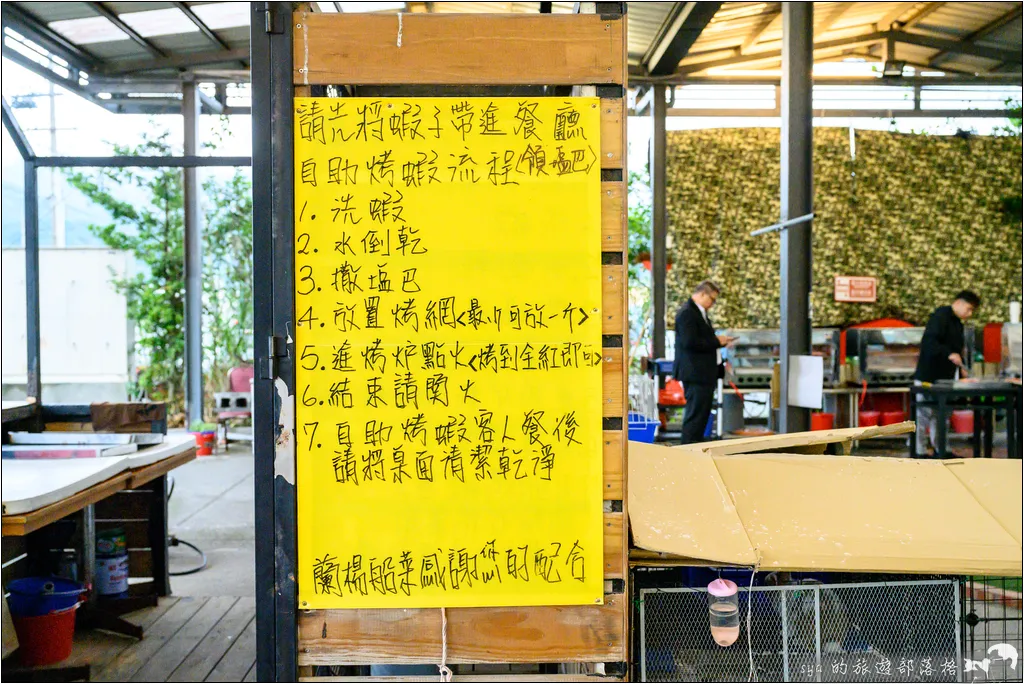 請先將蝦子帶進餐廳
自助烤蝦流程<領塩巴>
1. 洗蝦
2. 水倒乾
3. 撒塩巴
4. 放置烤網<最少可放一斤>
5. 進烤炉點火<烤到全紅即可>
6. 結束請關火
7. 自助烤蝦客人餐後
請將桌面清潔乾淨
蘭楊船菜感謝您的配合
sya 的旅遊部落格